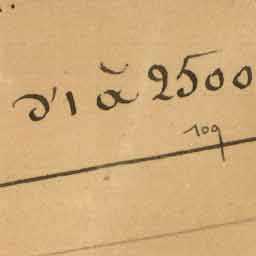 d'1 à 2500
109